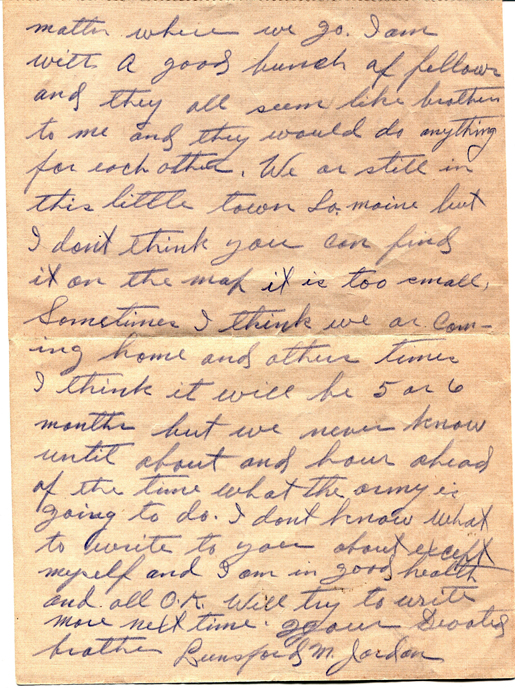 matter where we go. I am
with a good bunch of fellows
and they all seem like brothers
to me and they would do anything
for each other. We ar still in
this little town La maine but
I dont think you can find
it on the map it is too small.
Sometimes I think we ar com-
ing home and others times
I think it will be 5 or 6
months but we never know
until about and hour ahead
of the time what the army is
going to do. I dont know what
to write to you about except
myself and I am in good health
and all O.K. Will try to write
more next time. your Devoted
brother Lunsford M. Jordan